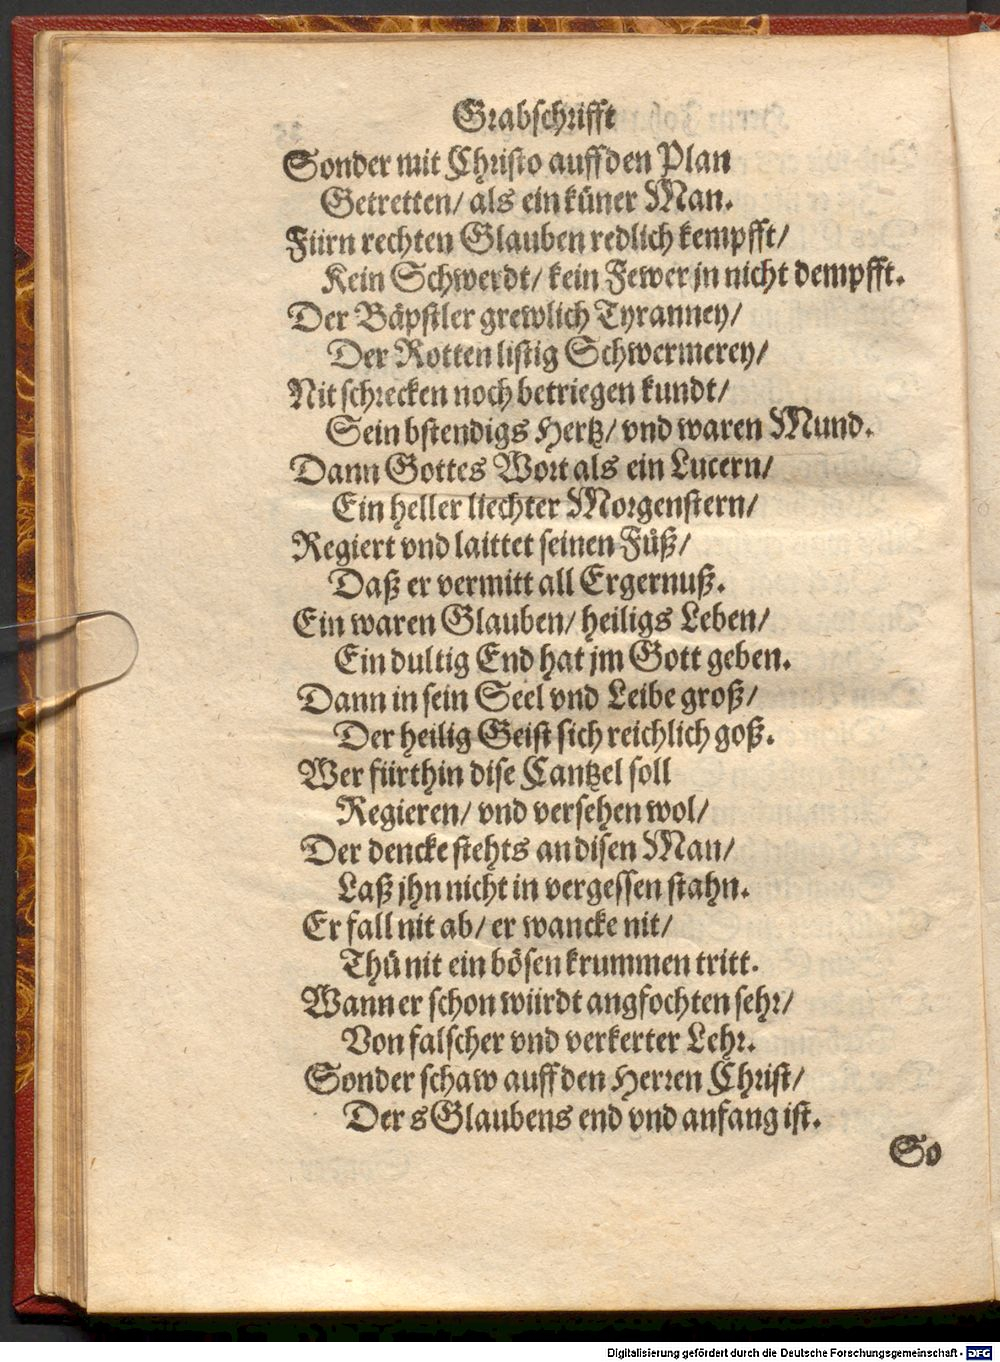 Grabschrifft
Sonder mit Christo auff den Plan
Getretten/ als ein küner Man.
Fürn rechten Glauben redlich kempfft/
Kein Schwerdt/ kein Fewer jn nicht dempfft.
Der Bäpstler grewlich Tyranney/
Der Rotten listig Schwermerey/
Nit schrecken noch betriegen kundt/
Sein bstendigs Hertz/ vnd waren Mund.
Dann Gottes Wort als ein Lucern/
Ein heller liechter Morgenstern/
Regiert vnd laittet seinen Füß/
Daß er vermitt all Ergernuß.
Ein waren Glauben/ heiligs Leben/
Ein dultig End hat jm Gott geben.
Dann in sein Seel vnd Leibe groß/
Der heilig Geist sich reichlich goß.
Wer fürthin dise Cantzel soll
Regieren/ vnd versehen wol/
Der dencke stehts an disen Man/
Laß jhn nicht in vergessen stahn.
Er fall nit ab/ er wancke nit/
Thü nit ein bösen krummen tritt.
Wann er schon würdt angfochten sehr/
Von falscher vnd verkerter Lehr.
Sonder schaw auff den Herren Christ/
Der s Glaubens end vnd anfang ist.
So
Digitalisierung gefördert durch die Deutsche Forschungsgemeinschaft - DFG